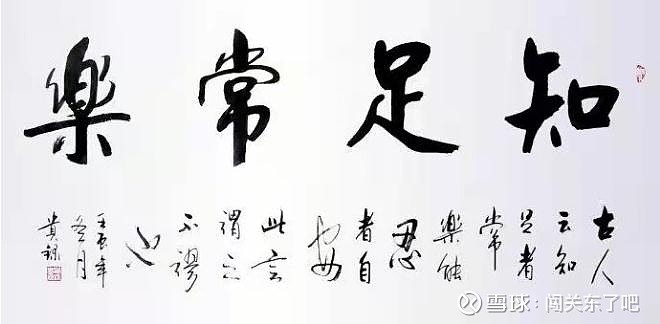 知足常樂
古人
云知
足者
常
樂能
忍
者自
安
此言
謂之
不謬
也
壬寅年
冬月
雪球：闯关东了吧